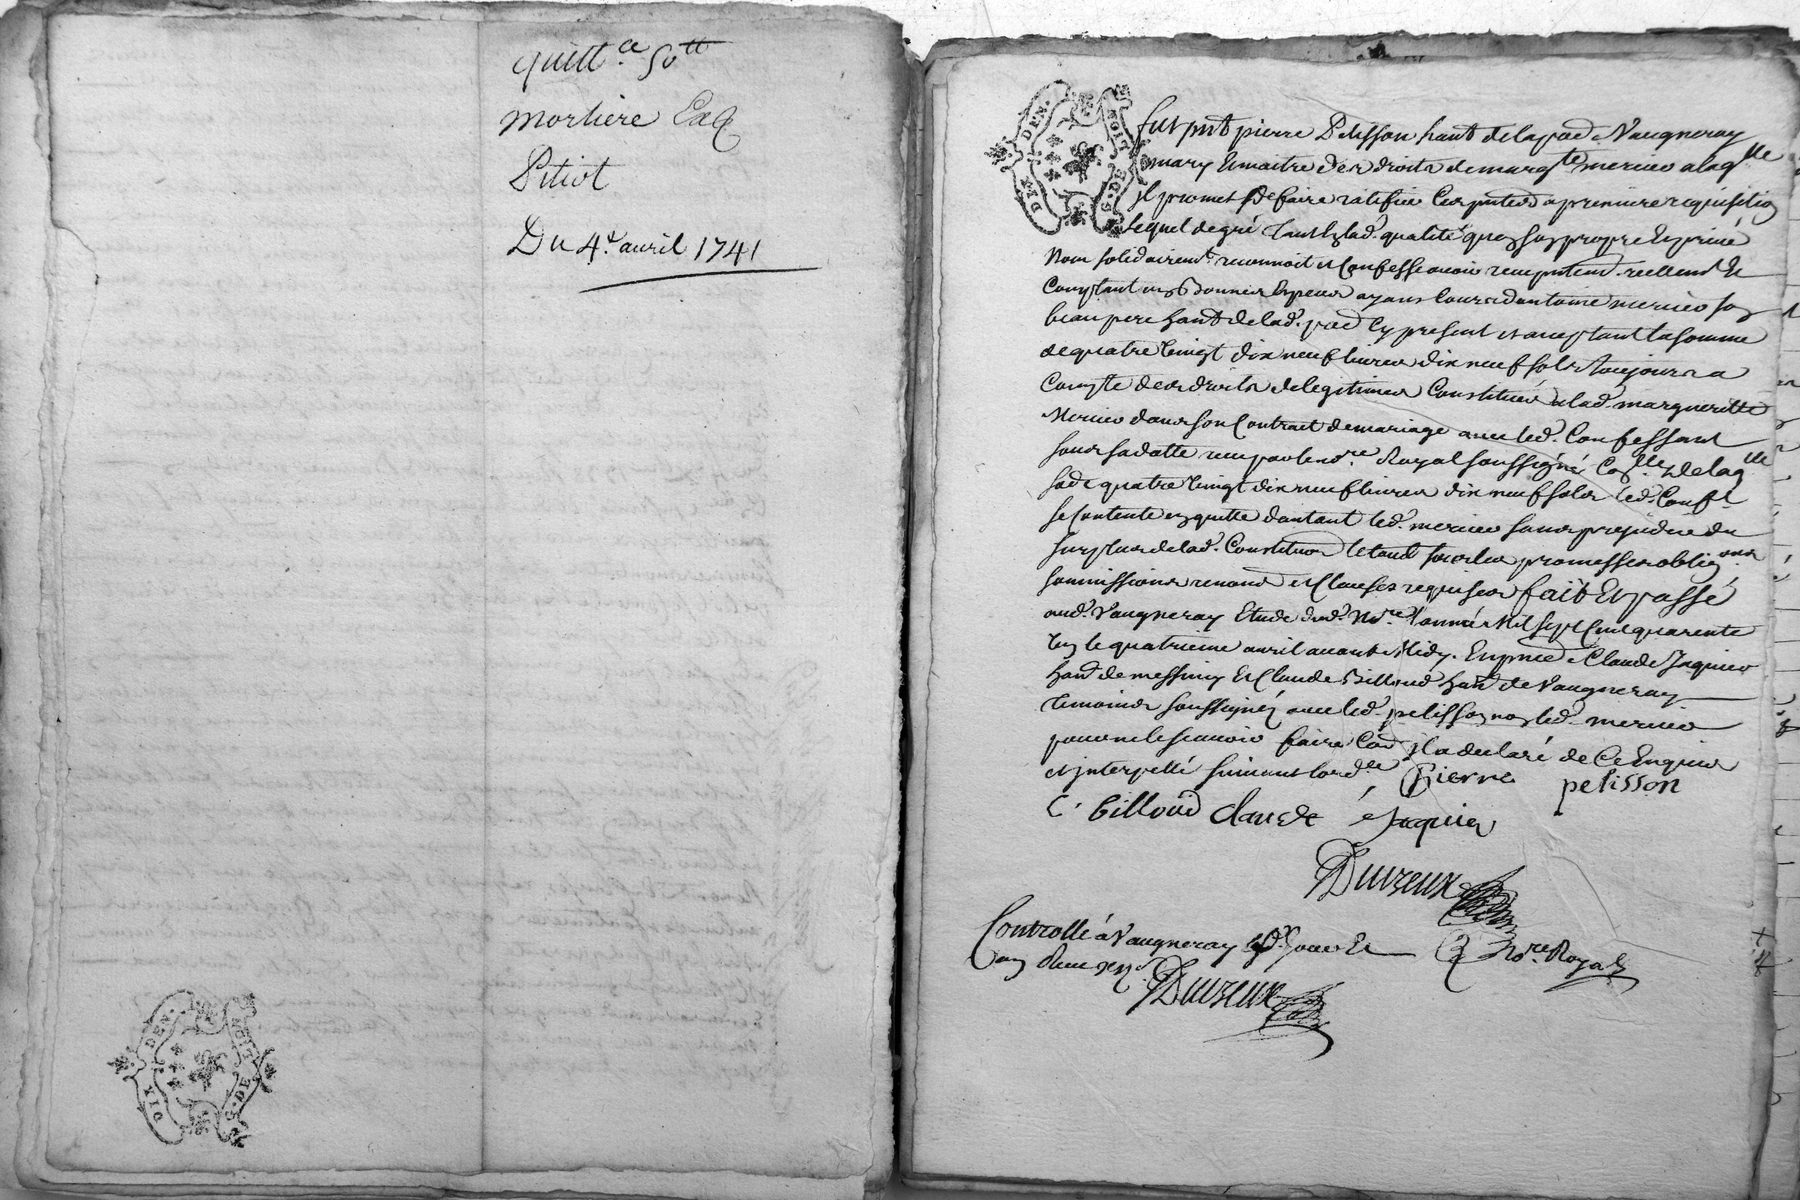 quitt.ce 50tt
mortiere Eaq
Pitiot
Du 4.e avril 1741
DIX DEN.
G. DE
DIX DEN.
G. DE
fut pnt pierre Pelisson hant de la pad Vaugneray
mary Et maitre des droits de margte mercier a laqlle
Il promet de faire ratifier Ces pntes a premiere requisition
Lequel de gré tant En lad. qualité quen son propre Et privé
Nom solidairemt reconnoit et Confesse avoir reçu reellemt Et
Comptant En Bonnes Especes ayans Cours dantoine mercier son
beau pere hant de lad. pad Cy present et acceptant la somme
de quatre Vingt dix neuf livres dix neuf sols toujours a
Compte des droits de legitimes Constitués a lad. margueritte
Mercier dans son Contrait de mariage avec led. Confessant
sous sa datte reçu par le nore Royal soussigné De laqlle
sade quatre Vingt dix neuf livres dix neuf sols led. Confst
se Contente en quitte dautant led. mercier sans prejudice du
surplus de lad. Constitution le tout sous les promesses obligons
soumissions renons et Clauses requises fait Et passé
aud. Vaugneray Etude dud. Nore L'année Mil sept Cent quarente
Un le quatrieme avril avant Midy. En pnce de Claude Jaquier
hant de messimy Et Claude Billoud hant de Vaugneray
temoins soussignéz avec led. pelisson non led. mercier
pour ne le scavoir faire Co il a declaré de Ce Enquis
et interpellé suivant lordce Pierre pelisson
C. billoud Claude Jaquier
Duvzeux
Controllé à Vaugneray led. jour Et
an Reçu
Nore Royal
Duvzeux